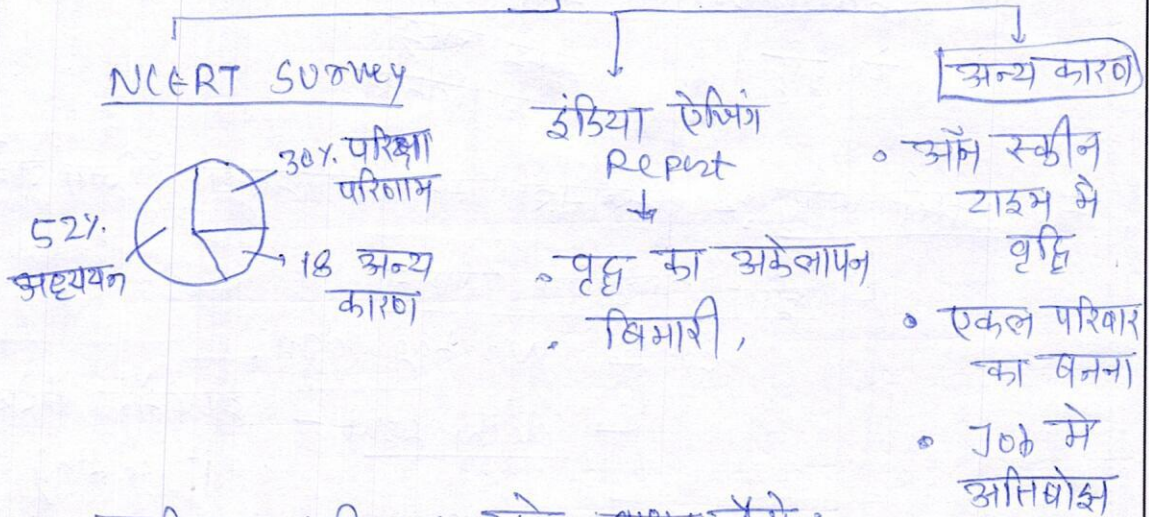 NCERT Survey
30% परिक्षा
परिणाम
52%
अध्ययन
18 अन्य
कारण
इंडिया ऐजिंग
Report
वृद्ध का अकेलापन
बिमारी,
अन्य कारण
ऑन स्क्रीन
टाइम मे
वृद्धि
एकल परिवार
का बनना
Job मे
अतिबोझ